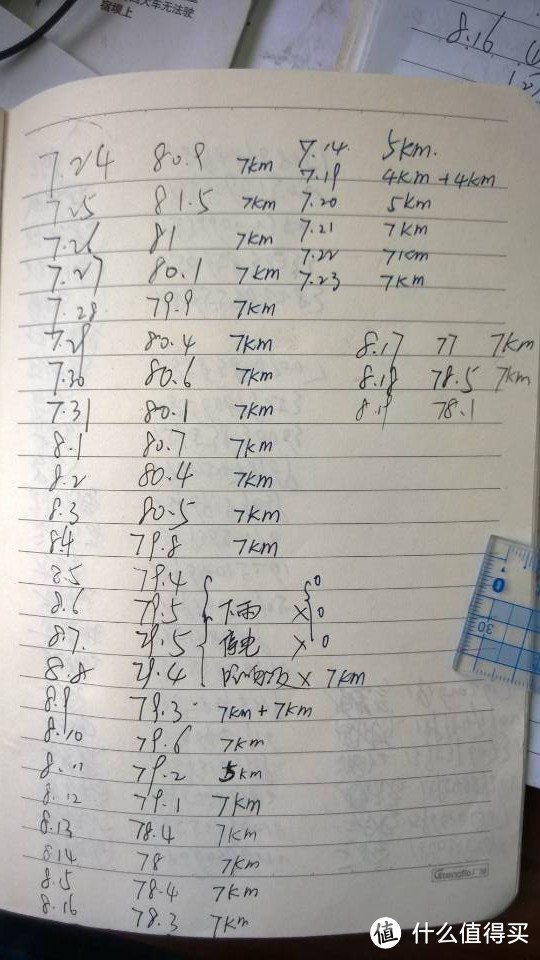 四大车无法驶
宿坝上
8.16
7.24 80.9 7km 7.14 5km.
7.19 4km+4km
7.25 81.5 7km 7.20 5km
7.26 81 7km 7.21 7km
7.22 7km
7.27 80.1 7km 7.23 7km
7.28 79.9 7km
7.29 80.4 7km 8.17 77 7km
7.30 80.6 7km 8.18 78.5 7km
7.31 80.1 7km 8.19 78.1
8.1 80.7 7km
8.2 80.4 7km
8.3 80.5 7km
8.4 79.8 7km
8.5 79.4 0
8.6 79.5 下雨 × 0
8.7. 79.5 停电 × 0
8.8 79.4 × 7km
8.9 79.3 7km+7km
8.10 79.6 7km
8.11 79.2 5km
8.12 79.1 7km
8.13 78.4 7km
8.14 78 7km
8.15 78.4 7km
8.16 78.3 7km
Guangbo
0
30
值 什么值得买